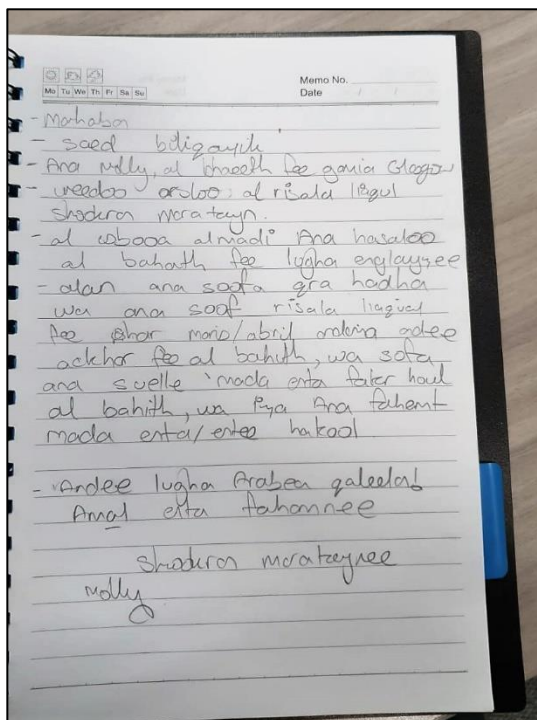 Memo No.
Mo Tu We Th Fr Sa Su
Date / /
- Mahaba
- saed biliqayik
- Ana Molly, al bhaeeth fee gamia Glasgow
- ureedoo arsloo: al risala liaqul
shodcran maratayn.
- al osbooa almadi Ana hasaloo
al bahath fee lugha englayzee
- alan ana soofa qra hadha
wa ana soof risala liaqual
fee shar maris/abril andee
ackhar fee al bahith, wa sofa
ana suelle mada enta faker houl
al bahith, wa Ana fahemt
mada enta/entee hakool
- Andee lugha Arabea qaleela!
Amal enta fahamnee
Shodcran marateynee
Molly